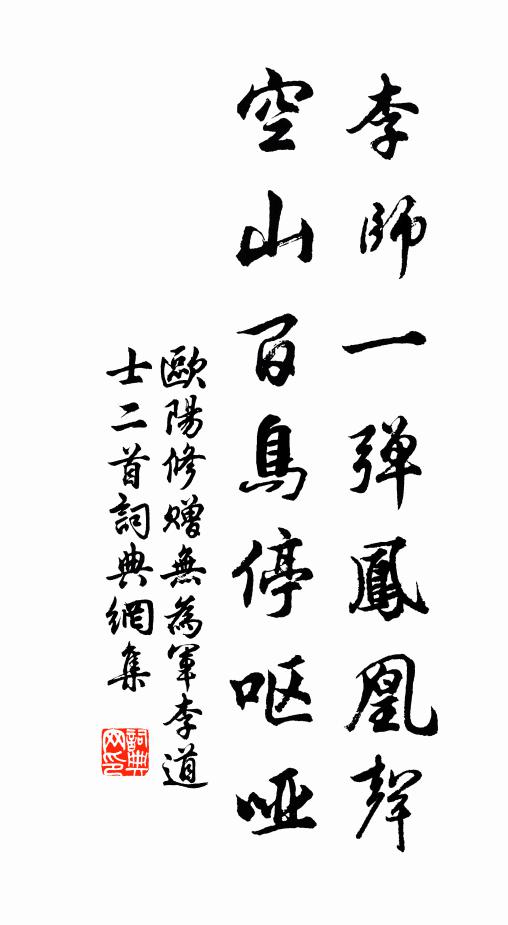 李師一弹鳳凰聲
空山百鳥停呕哑
歐陽修贈無為軍李道
士二首詞典網集
詞典
网印